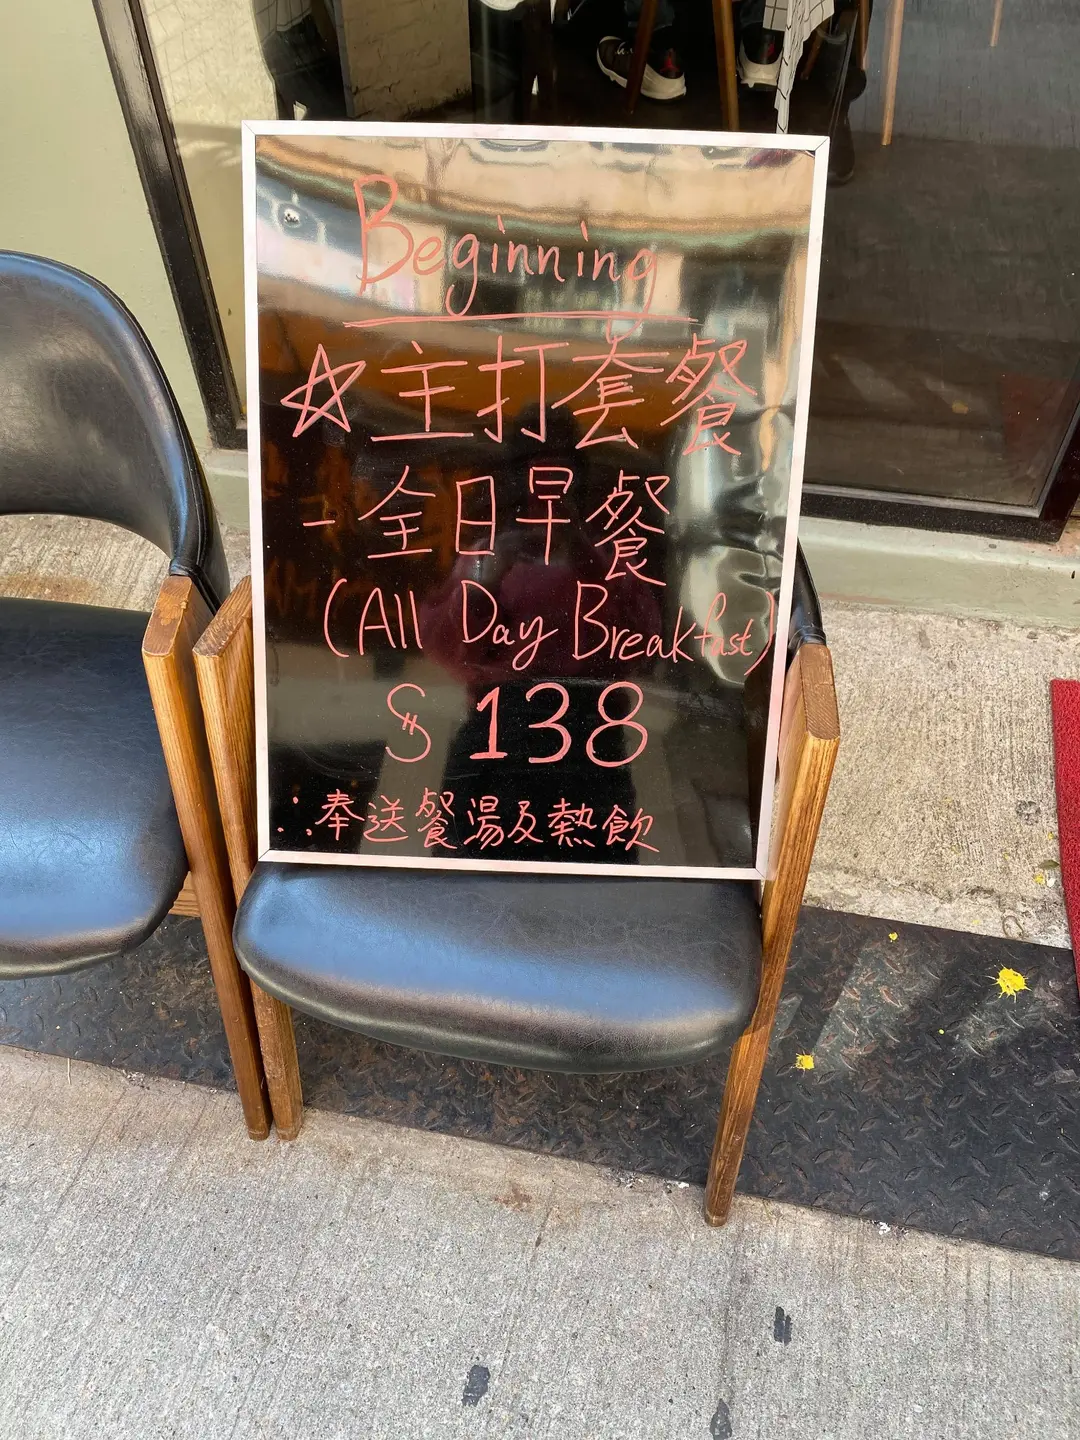 Beginning
☆主打套餐
-全日早餐
(All Day Breakfast)
$138
∴奉送餐湯及熱飲